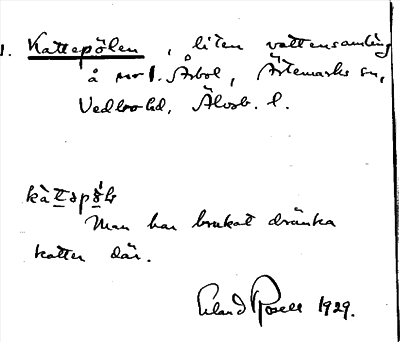 1. Kattepölen, liten vattensamling
å nr 1. Årbol, Ärtemarks sn,
Vedbo hd, Älvsb. l.
Man har brukat dränka
katter där.
Erland Rosell 1929.